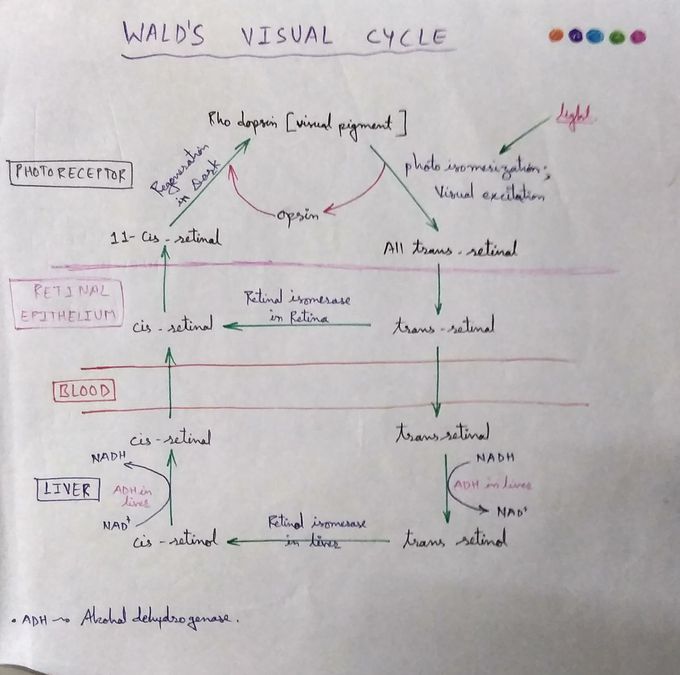 WALD'S VISUAL CYCLE
Rhodopsin [visual pigment]
Light
PHOTORECEPTOR
Regeneration
in Dark
photo isomerization;
Visual excitation
opsin
11-cis-retinal
All trans-retinal
RETINAL
EPITHELIUM
Retinal isomerase
in Retina
cis-retinal
trans-retinal
BLOOD
cis-retinal
trans retinal
NADH
NADH
LIVER
ADH in
liver
ADH in liver
NAD⁺
NAD⁺
Retinol isomerase
in liver
cis-retinol
trans retinol
• ADH → Alcohol dehydrogenase.